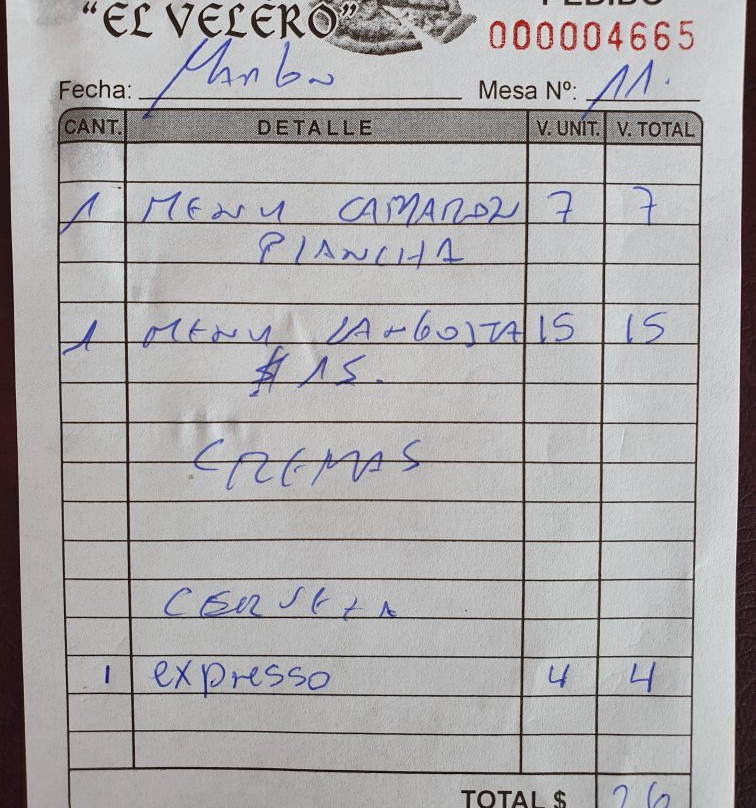 "EL VELERO"
PEDIDO
000004665
Fecha: Mesa Nº: 11.
CANT. DETALLE V. UNIT. V. TOTAL
1 MENU CAMARON 7 7
PLANCHA
1 MENU LANGOSTA 15 15
$ 15.
CREMAS
CERVEZA
1 expresso 4 4
TOTAL $ 26